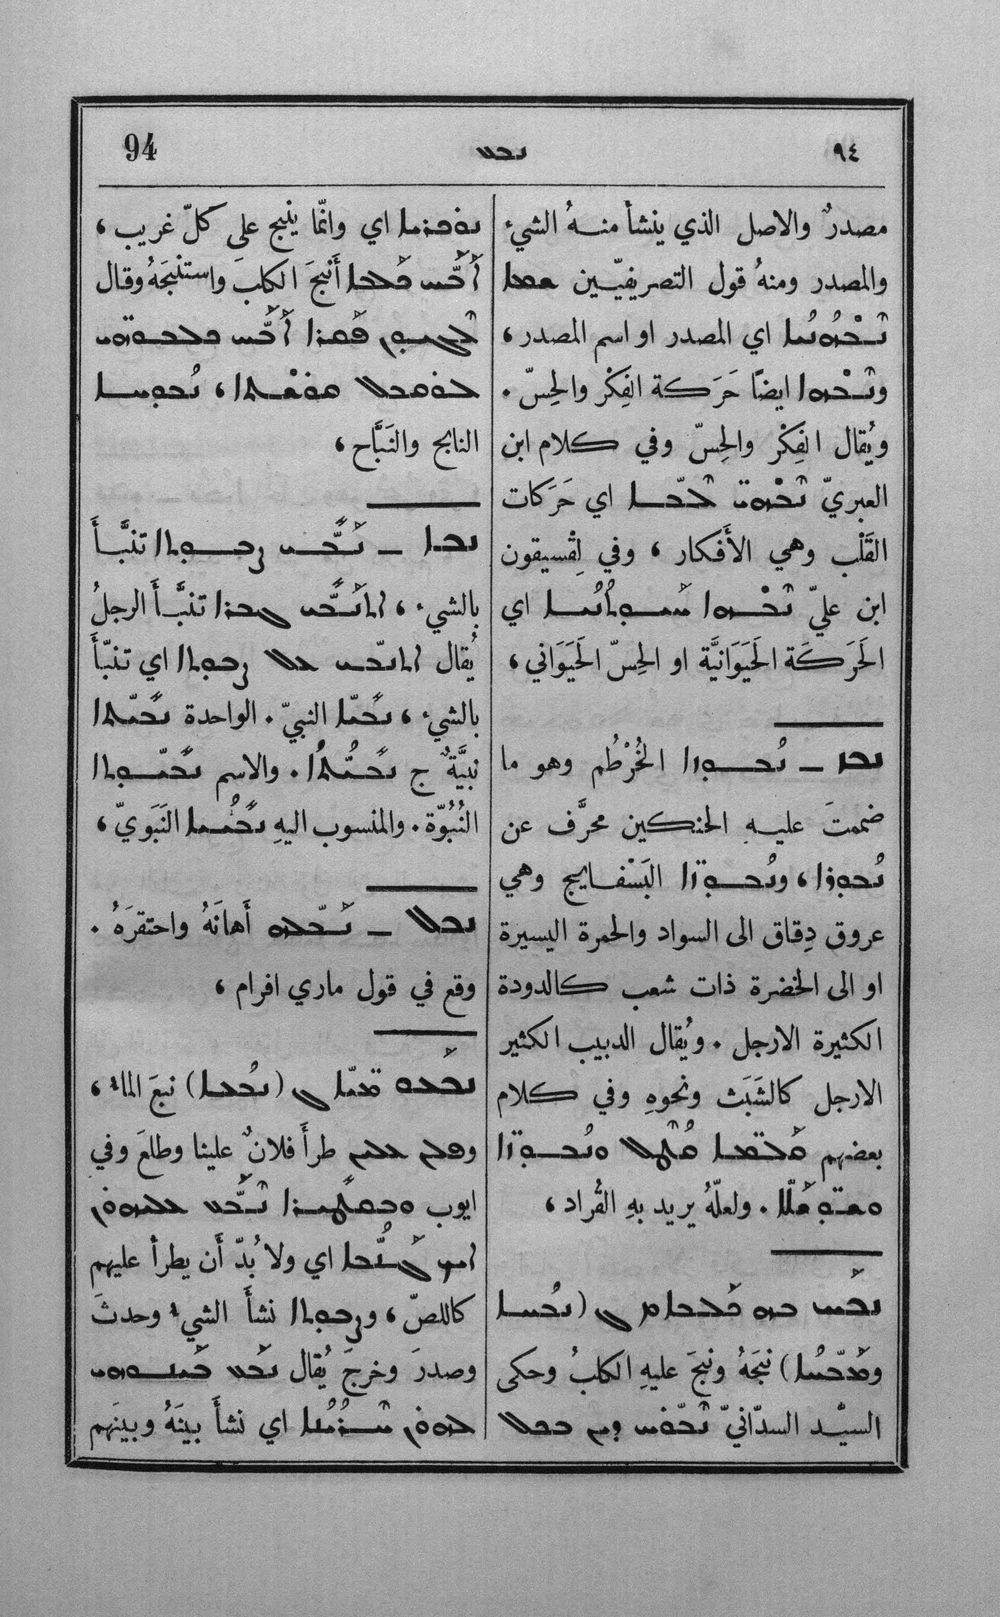 ٩٤
ܢܒܥ
94
مصدرٌ والاصل الذي ينشأ منهُ الشيء
والمصدر ومنهُ قول التصريفيّين ܫܡܐ
ܢܒܗܢܝܐ اي المصدر او اسم المصدر،
وܢܒܗܐ ايضًا حَرَكة الفِكْر والحِسّ.
ويُقال الفِكْر والحِسّ وفي كلام ابن
العبريّ ܢܒܗ̈ܝ ܠܒܐ اي حَرَكات
القَلْب وهي الأَفكار، وفي لِقْسيقون
ابن عليّ ܢܒܗܐ ܚܝܘܬܢܝܐ اي
الحَرَكَة الحَيَوَانيَّة او الحِسّ الحَيَوَاني،
ܢܒܙ ــ ܢܒܘܙܐ الخُرْطُم وهو ما
ضممتَ عليهِ الحنكين محرَّف عن
ܢܒܘܪܐ، وܢܒܘܙ̈ܐ البَسْفايج وهي
عروق دِقاق الى السواد والحمرة اليسيرة
او الى الخضرة ذات شعب كالدودة
الكثيرة الارجل. ويُقال الدبيب الكثير
الارجل كالشَبَث ونحوهِ وفي كلام
بعضهم ܘܢܒܘܙ̈ܐ
. ولعلّهُ يريد بهِ القُراد،
ܢܒܚ ܒܗ ܟܠܒܐ (ܢܒܚܐ
ܘܡܒܚܐ) نبحَهُ ونبحَ عليهِ الكلبُ وحكى
السيّد السدّانيّ ܕܝܢ ܟܠܒܐ
ܢܘܟܪܝܐ اي وانّما ينبح على كلّ غريب،
ܐܒܚ ܟܠܒܐ أَنبحَ الكلبَ واستنبحَهُ وقال
ܐܒܚ ܟܠܒܘ̈ܗܝ
، ܢܒܘܚܐ
النابح والنَبَّاح،
ܢܒܐ ــ ܢܒܝ ܨܒܘܬܐ تنبَّأَ
بالشيء، ܐܬܢܒܝ ܓܒܪܐ تنبَّأَ الرجلُ
يُقال ܐܬܢܒܝ ܥܠ ܨܒܘܬܐ اي تنبّأَ
بالشيء، ܢܒܝܐ النبيّ. الواحدة ܢܒܝܬܐ
نبيَّةٌ ج ܢܒܝܬܐ. والاسم ܢܒܝܘܬܐ
النُبُوّة. والمنسوب اليهِ ܢܒܝܝܐ النَبَويّ،
ܢܒܠ ــ ܢܒܠܗ أَهانَهُ واحتقرَهُ.
وقع في قول ماري افرام،
ܢܒܥܘ ܡܝ̈ܐ (ܢܒܥܐ) نبعَ الماء،
وܦܠܢ ܥܠܝܢ طرأَ فلانٌ علينا وطلعَ وفي
ايوب ܢܒܥ ܥܠܝܗܘܢ
ܐܝܟ ܓܢܒܐ اي ولا بُدّ أَن يطرأ عليهم
كاللصّ، وܨܒܘܬܐ نشأَ الشيء وحدثَ
وصدرَ وخرجَ يُقال ܢܒܥ ܒܝܢܘܗܝ
ܠܗܘܢ ܚܪܝܢܐ اي نشأَ بينَهُ وبينَهم